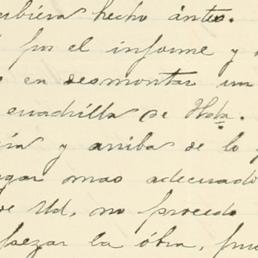 hubiera hecho ántes.
por el informe y
en desmontar un
cuadrilla de
y arriba de lo
gar mas adecuado
de Ud, no procedo
pezar la óbra, pue